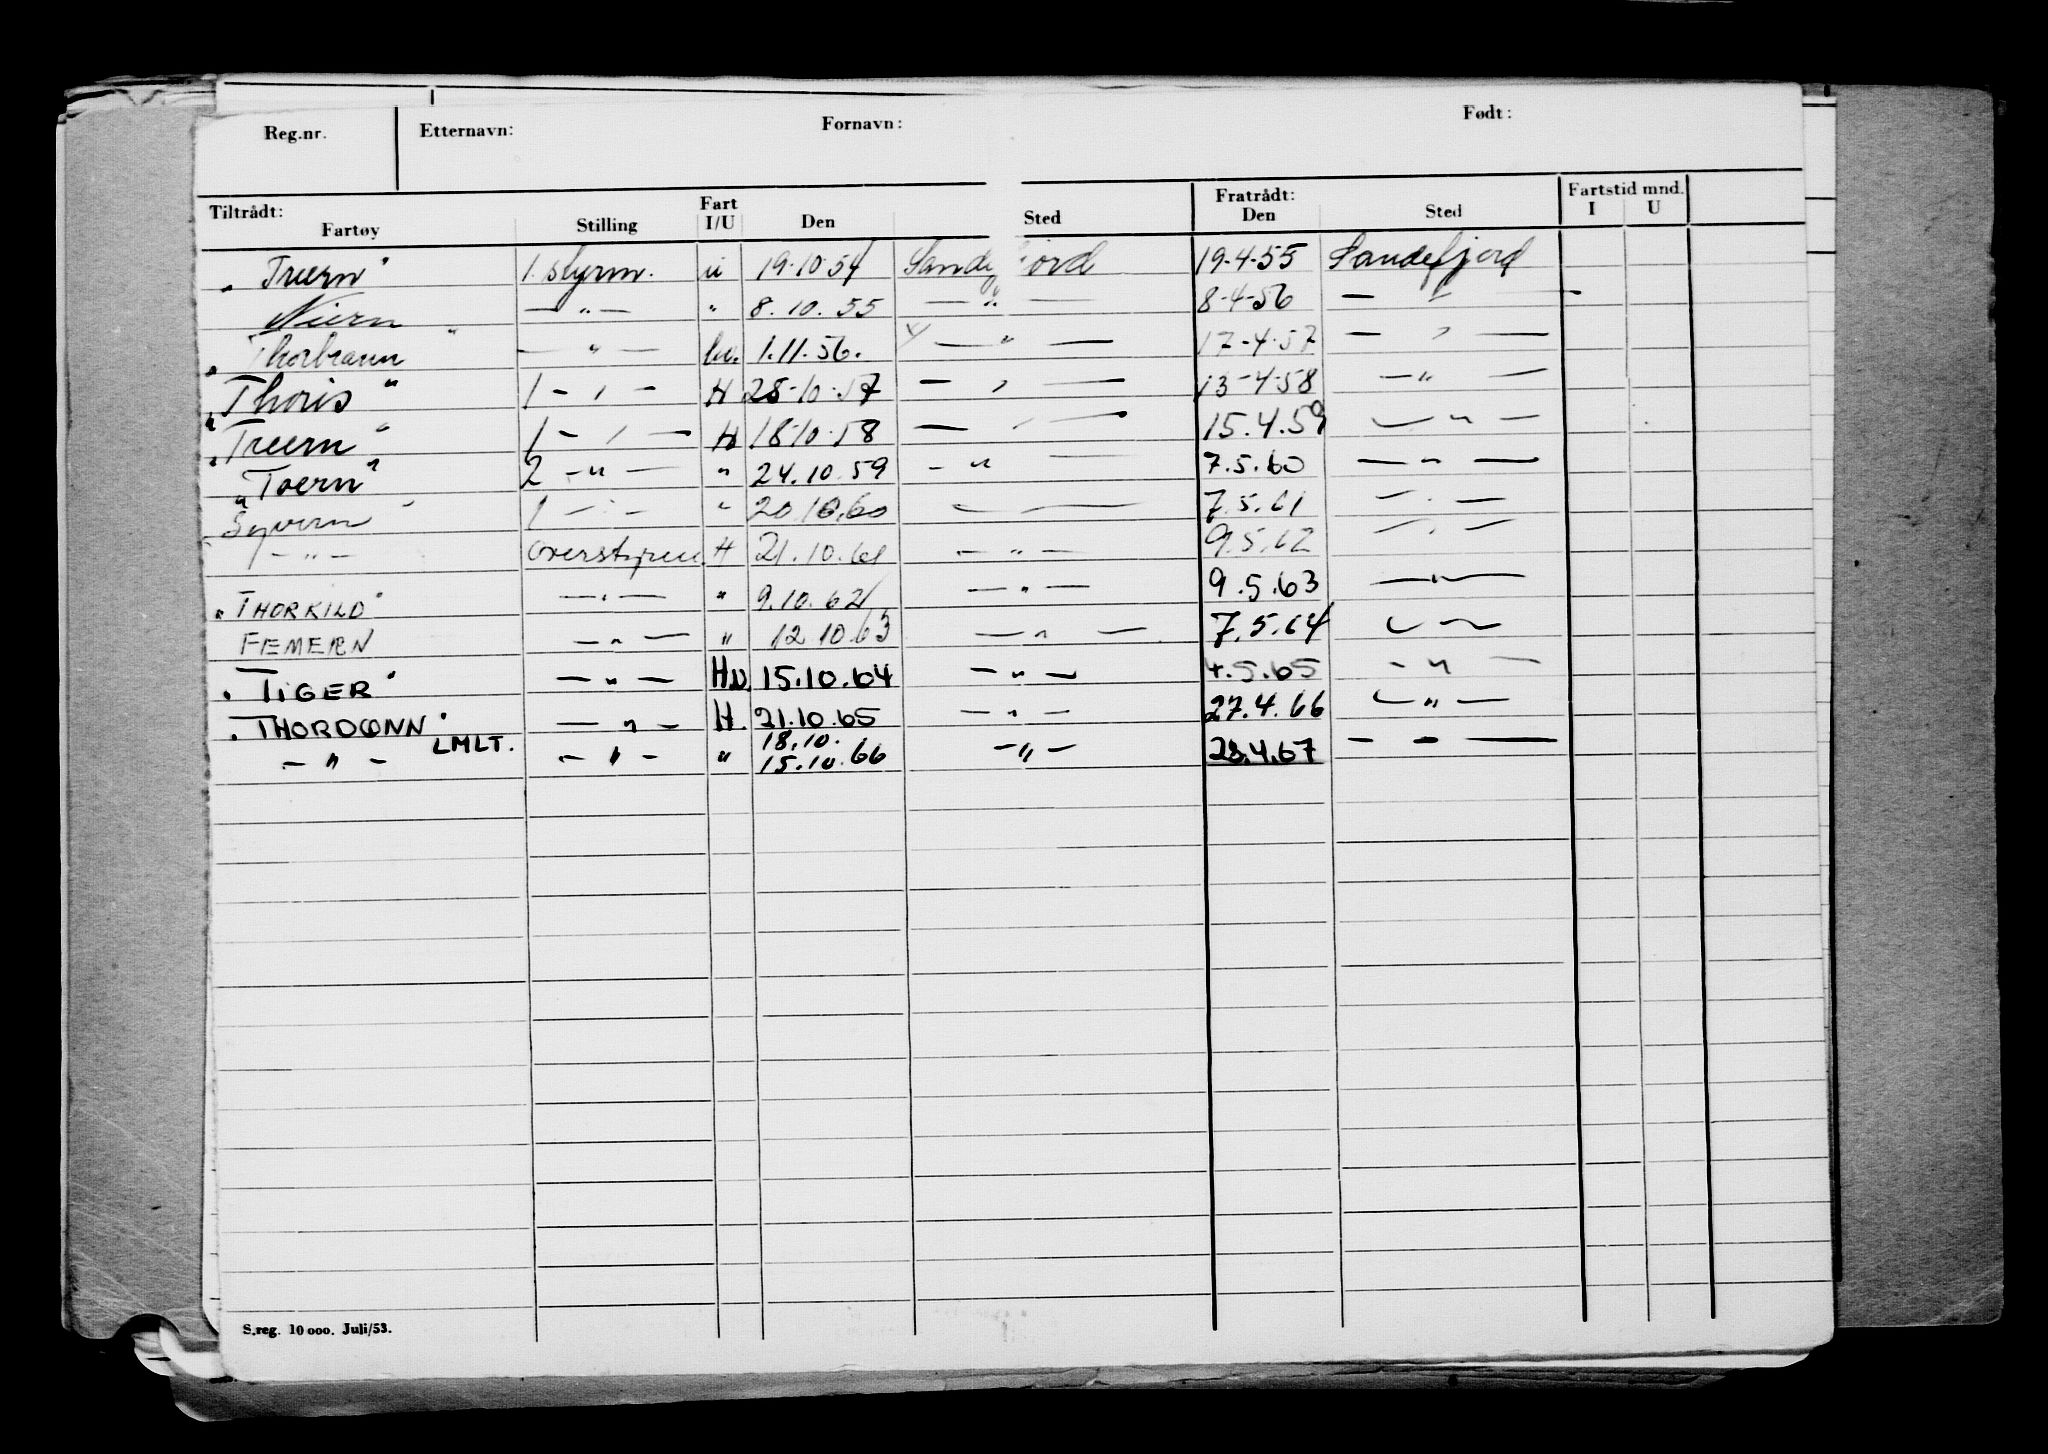 Reg.nr. Etternavn: Fornavn: Født:
Tiltrådt: Fart Fratrådt: Fartstid mnd.
Fartøy Stilling I/U Den Sted Den Sted I U
"Treern" 1. styrm. u 19-10-54 Sandefjord 19-4-55 Sandefjord
Niern — " — " 8.10.55 — " — 8-4-56 — " —
"Thorbrann" — " — 1.11.56. — " — 17-4-57 — " —
"Thoris" 1 - " - H 28-10-57 — " — 13-4-58 — " —
"Treern" 1 - " — H 18-10-58 — " — 15.4.59 — " —
"Toern" 2 - " — " 24.10.59 - " — 7.5.60 — " —
"Syvern" 1 - " - " 20.10.60 — " — 7.5.61 — " —
- " - Overstyrm. H 21.10.61 - " - 9.5.62 — " —
"THORKILD" — " — " 9.10.62 — " — 9.5.63 — " —
FEMERN — " — " 12.10.63 — " — 7.5.64 — " —
"TIGER" — " — 15.10.64 — " — 4.5.65 - " —
"THORDØNN" — " - H. 21.10.65 — " — 27.4.66 — " —
LMLT. 18.10.
- " - - " - " 15.10.66 - " - 28.4.67 — - —
S.reg. 10 000. Juli/53.